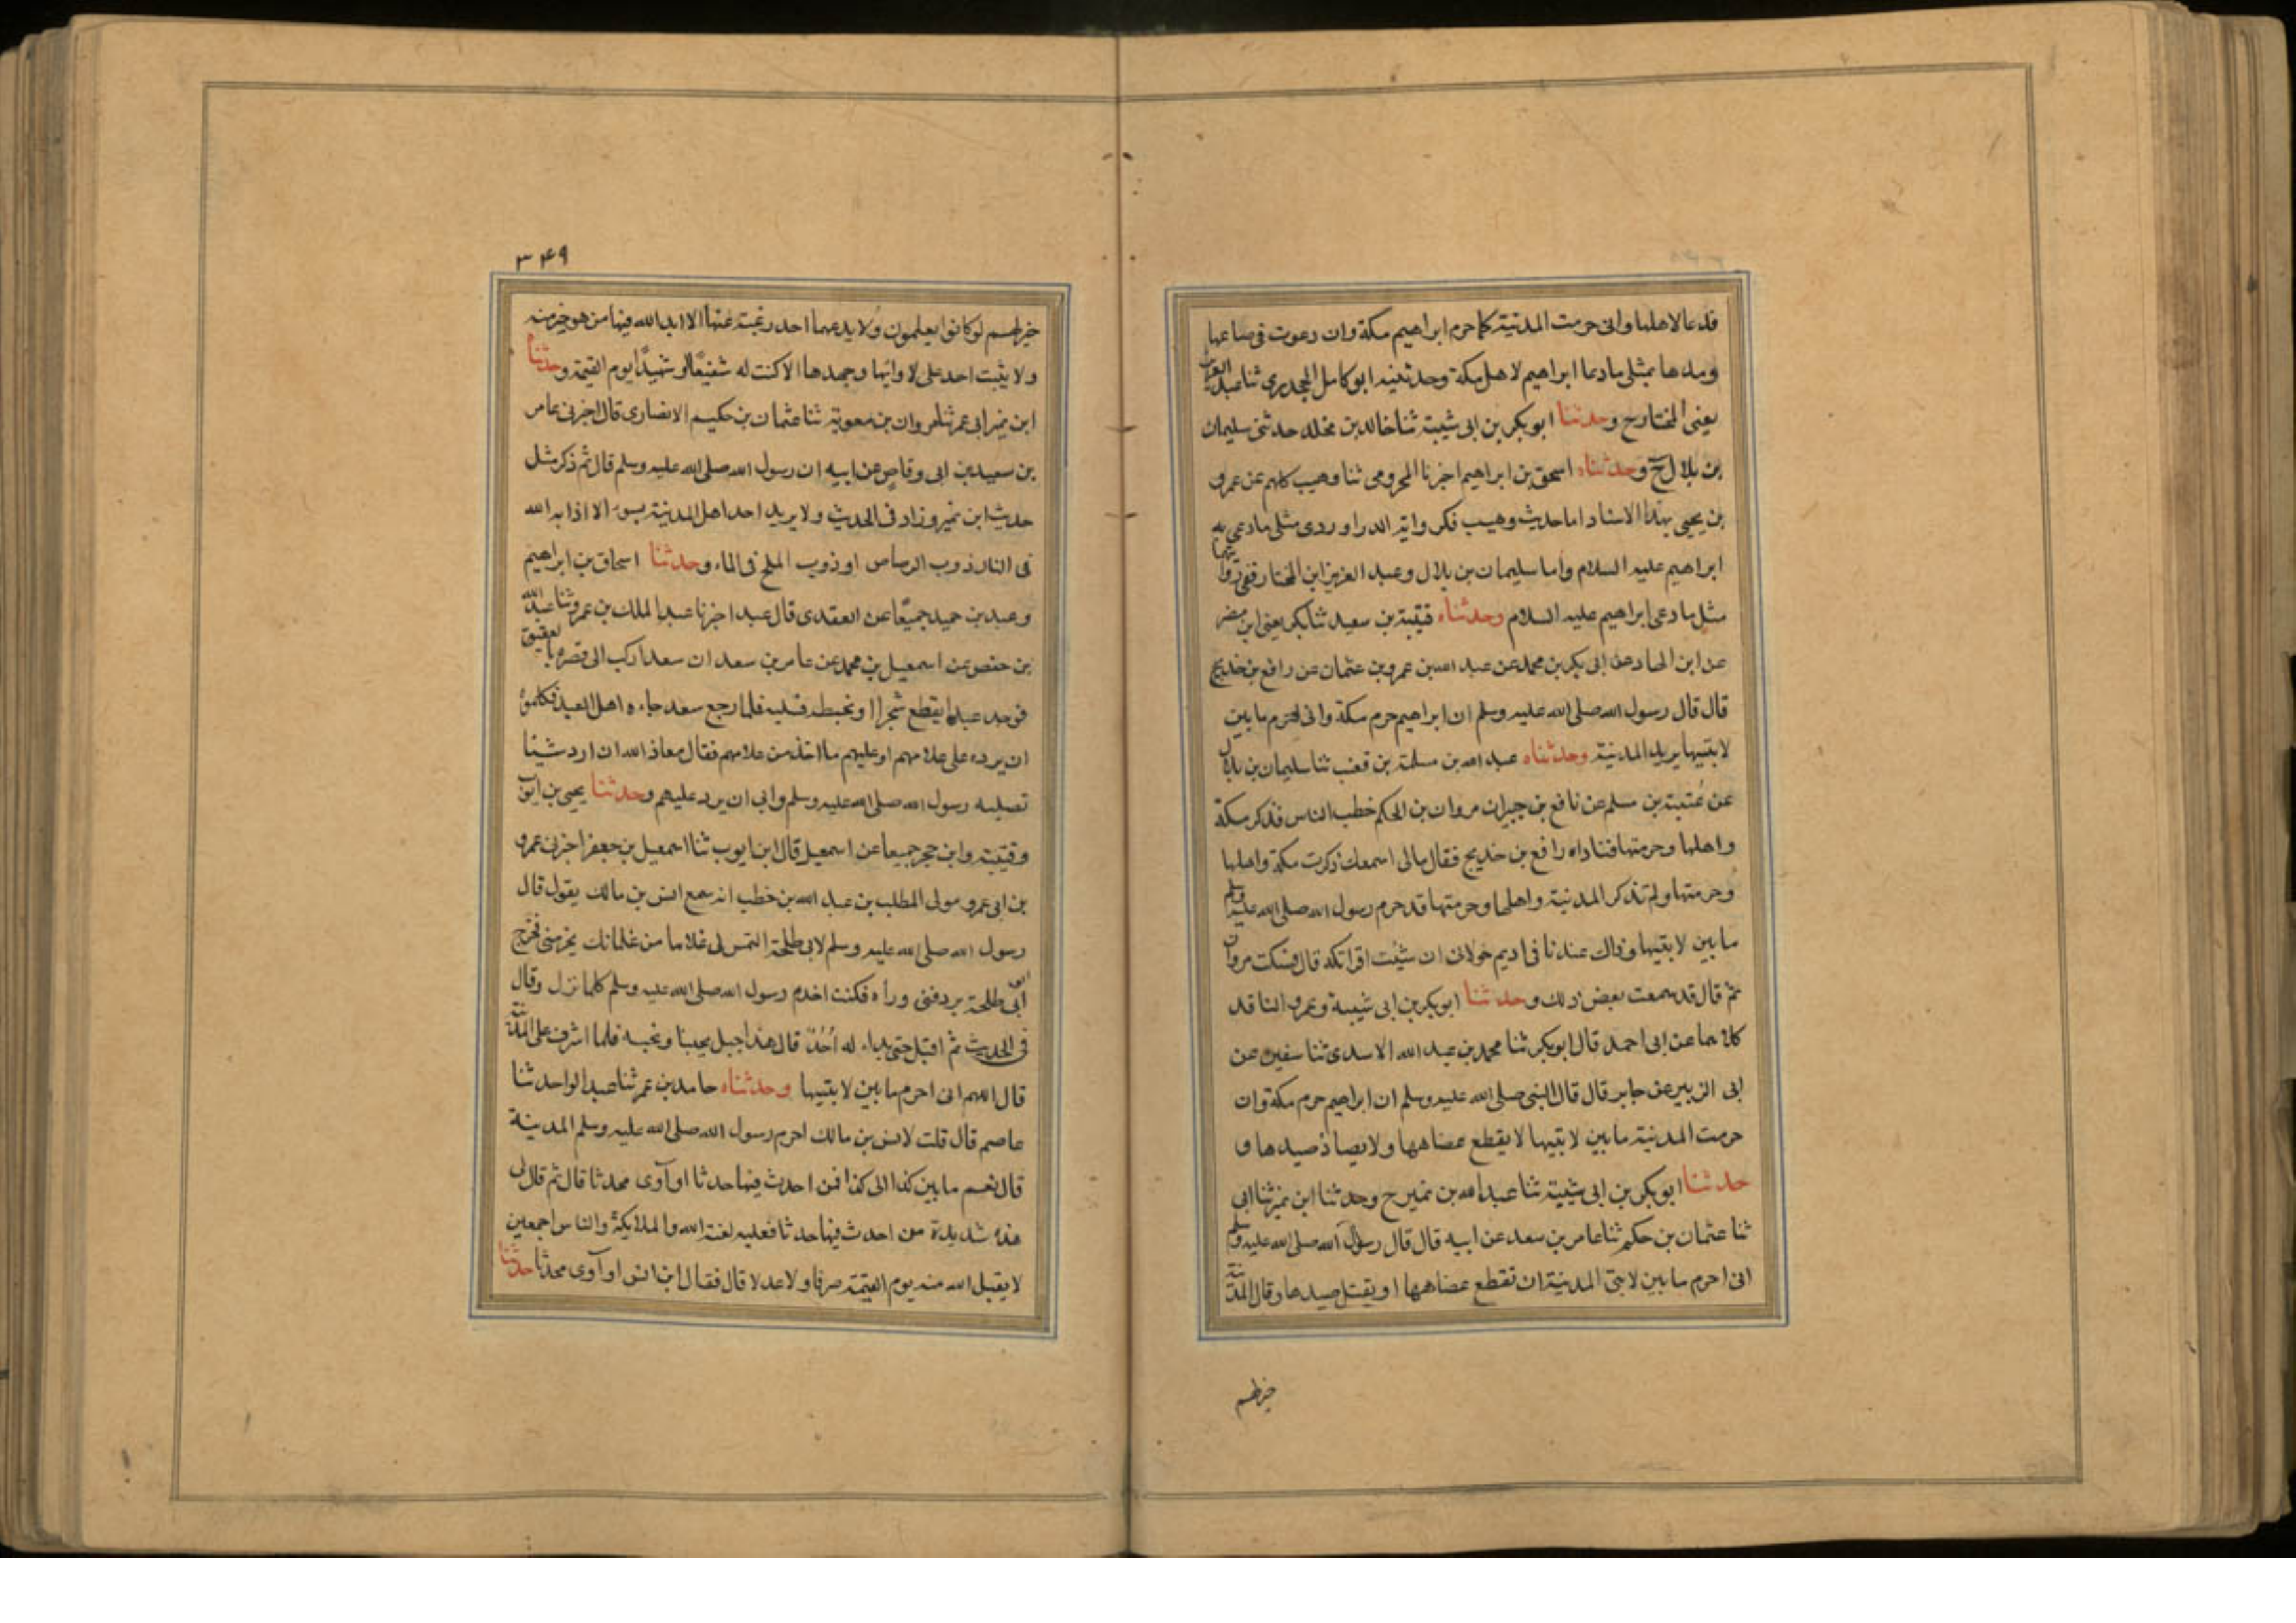 قد عا لاهلها وانى حرمت المدينة كما حرم ابراهيم مكة وان دعوت فى صاعها
ومدها بمثلى ما دعا ابراهيم لاهل مكة وحدثنيه ابو كامل الجحدرى ثنا عبد العزيز
يعنى المختار ح وحدثنا ابو بكر بن ابى شيبة ثنا خالد بن مخلد حدثنى سليمان
بن بلال ح وحدثناه اسحق بن ابراهيم اخبرنا المخزومى ثنا وهيب كلهم عن عمرو
بن يحيى بهذا الاسناد اما حديث وهيب فكرواية الدراوردى مثلى ما دعى به
ابراهيم عليه السلام واما سليمان بن بلال وعبد العزيز ابن المختار ففى روايتهما
مثل ما دعى ابراهيم عليه السلام وحدثناه قتيبة بن سعيد ثنا بكر يعنى ابن مضر
عن ابن الهاد عن ابى بكر بن محمد عن عبد الله بن عمرو بن عثمان عن رافع بن خديج
قال قال رسول الله صلى الله عليه وسلم ان ابراهيم حرم مكة وانى احرم ما بين
لابتيها يريد المدينة وحدثناه عبد الله بن مسلمة بن قعنب ثنا سليمان بن بلال
عن عتبة بن مسلم عن نافع بن جبيران مروان بن الحكم خطب الناس فذكر مكة
واهلها وحرمتها فناداه رافع بن خديج فقال مالى اسمعك ذكرت مكة واهلها
وحرمتها ولم تذكر المدينة واهلها وحرمتها قد حرم رسول الله صلى الله عليه وسلم
ما بين لابتيها وذاك عندنا فى اديم خولانى ان شئت اقراتكه قال فسكت مروان
ثم قال قد سمعت بعض ذلك وحدثنا ابو بكر بن ابى شيبة وعمرو الناقد
كلاهما عن ابى احمد قال ابو بكر ثنا محمد بن عبد الله الاسدى ثنا سفين عن
ابى الزبير عن جابر قال قال النبى صلى الله عليه وسلم ان ابراهيم حرم مكة وان
حرمت المدينة ما بين لابتيها لا يقطع عضاهها ولا يصاذ صيدها و
حدثنا ابو بكر بن ابى شيبة ثنا عبد الله بن نمير ح وحدثنا ابن نمير ثنا ابى
ثنا عثمان بن حكيم ثنا عامر بن سعد عن ابيه قال قال رسول الله صلى الله عليه وسلم
انى احرم ما بين لابتى المدينة ان تقطع عضاهها او يقتل صيدها وقال المدينة
خير لهم
٣٤٩
خير لهم لو كانوا يعلمون ولا يدعها احد رغبة عنها الا ابدا الله فيها من هو خير منه
ولا يثبت احد على لاوائها وجهدها الا كنت له شفيعًا او شهيدًا يوم القيمة وحدثنا
ابن نمير ابى عمر ثنا مروان بن معوية ثنا عثمان بن حكيم الانصارى قال اخبرنى عامر
بن سعيد بن ابى وقاص عن ابيه ان رسول الله صلى الله عليه وسلم قال ثم ذكر مثل
حديث ابن نمير وزاد فى الحديث ولا يريد احد اهل المدينة بسوء الا اذابه الله
فى النار ذوب الرصاص او ذوب الملح فى الماء وحدثنا اسحاق بن ابراهيم
وعبد بن حميد جميعًا عن العقدى قال عبد اخبرنا عبد الملك بن عمرو ثنا عبد الله
بن حفص عن اسمعيل بن محمد عن عامر بن سعد ان سعدا ركب الى قصره بالعقيق
فوجد عبدا يقطع شجرا او يخبطه فسلبه فلما رجع سعد جاءه اهل العبد فكلموه
ان يرده على غلامهم او عليهم ما اخذ من غلامهم فقال معاذ الله ان ارد شيئا
نفليه رسول الله صلى الله عليه وسلم وابى ان يرد عليهم وحدثنا يحيى بن ايوب
وقتيبة وابن حجر جميعا عن اسمعيل قال ابن ايوب ثنا اسمعيل بن جعفر اخبرنى عمرو
بن ابى عمرو مولى المطلب بن عبد الله بن خطب انه سمع انس بن مالك يقول قال
رسول الله صلى الله عليه وسلم لابى طلحة التمس لى غلاما من غلمانك يخدمنى فخرج
ابى طلحة يردفنى وراه فكنت اخدم رسول الله صلى الله عليه وسلم كلما نزل وقال
فى الحديث ثم اقبل حتى بداء له اُحُد قال هذا جبل يحبنا ونحبه فلما اشرف على المدينة
قال اللهم انى احرم ما بين لابتيها وحدثناه حامد بن عمر ثنا عبد الواحد ثنا
عاصم قال قلت لانس بن مالك احرم رسول الله صلى الله عليه وسلم المدينة
قال نعم ما بين كذا الى كذا فمن احدث فيها حدثا او آوى محدثا قال ثم قال لى
هذه شديدة من احدث فيها حدثا فعليه لعنة الله والملايكة والناس اجمعين
لا يقبل الله منه يوم القيمة صرفا ولا عدلا قال فقال ابن انس او آوى محدثا حدثنا